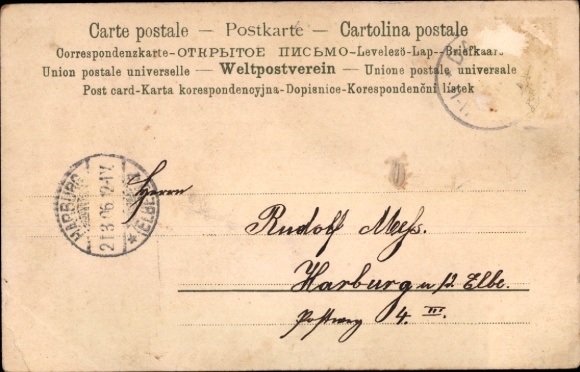 Carte postale — Postkarte — Cartolina postale
Correspondenzkarte-ОТКРЫТОЕ ПИСЬМО-Levelező-Lap--Briefkaart
Union postale universelle — Weltpostverein — Unione postale universale
Post card-Karta korespondencyjna-Dopisnice-Korespondenční lístek
HARBURG
21.3.06.12-1V.
(ELBE)
Herrn
Rudolf Meß.
Harburg a/d. Elbe.
Postweg 4. III.